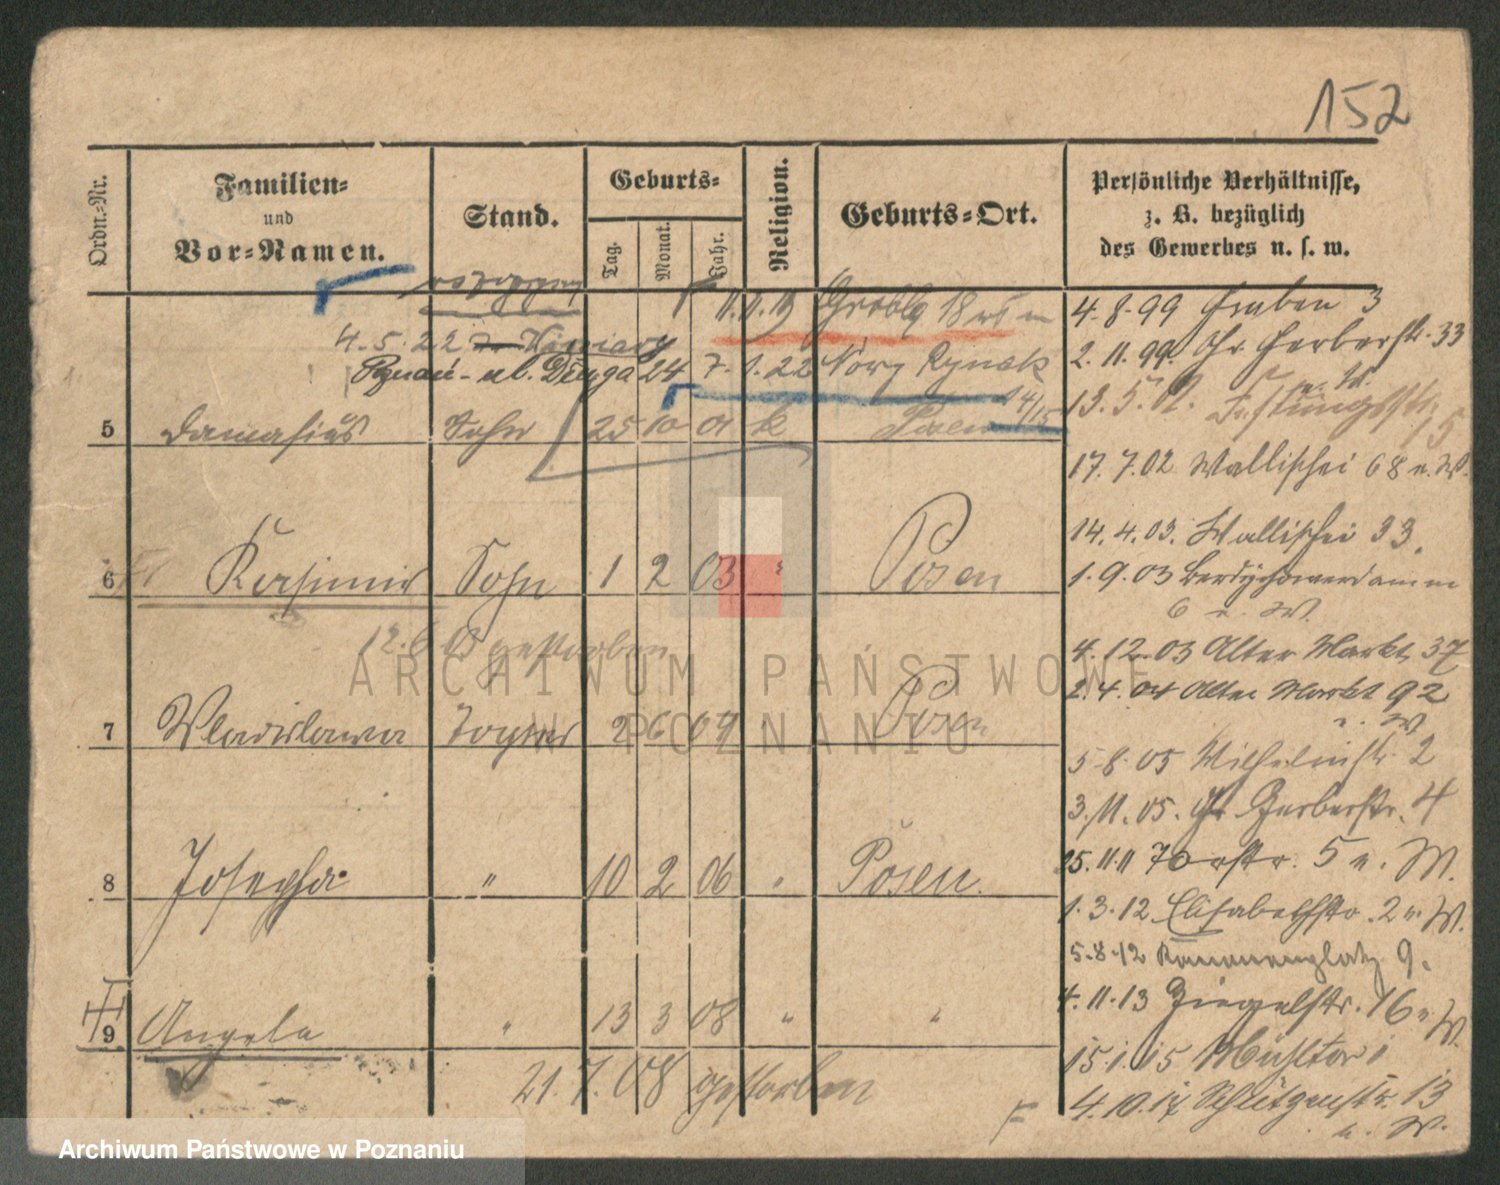 152
Ordn.-Nr.
Familien-
und
Vor-Namen.
Stand.
Geburts-
Tag.
Monat.
Jahr.
Religion.
Geburts-Ort.
Persönliche Verhältnisse,
z. B. bezüglich
des Gewerbes u. s. w.
11.11.19 Grobla 18
4.5.22
Poznań - ul. Długa 24 7.1.22 Nowy Rynek
14/15
5 Damasius Sohn 25 10 01 k Posen
6 Kasimir Sohn 1 2 03 " Posen
12.6.03 gestorben
7 Wladislawa Tochter 2 6 04 " Posen
8 Josepha " 10 2 06 " Posen.
9 Angela " 13 3 08 " "
21.7.08 gestorben
4.8.99 Graben 3
2.11.99. Gr. Gerberstr. 33
u. W.
13.5.02. Festungsstr. 15
17.7.02 Wallischei 68 u. W.
14.4.03. Wallischei 33.
1.9.03 Berdychowerdamm
6 u. W.
4.12.03 Alter Markt 37
2.4.04 Alter Markt 92
u. W
5.8.05 Wilhelmstr. 2
3.11.05. Gr. Gerberstr. 4
25.11.11 Torstr. 5 u. W.
1.3.12 Elisabethstr. 2 u. W.
5.8.12 Kanonenplatz 9.
4.11.13 Ziegelstr. 16 u. W.
15.1.15 Mühltor 1
4.10.17 Schützenstr. 13
u. W.
F
ARCHIWUM PAŃSTWOWE
W POZNANIU
Archiwum Państwowe w Poznaniu